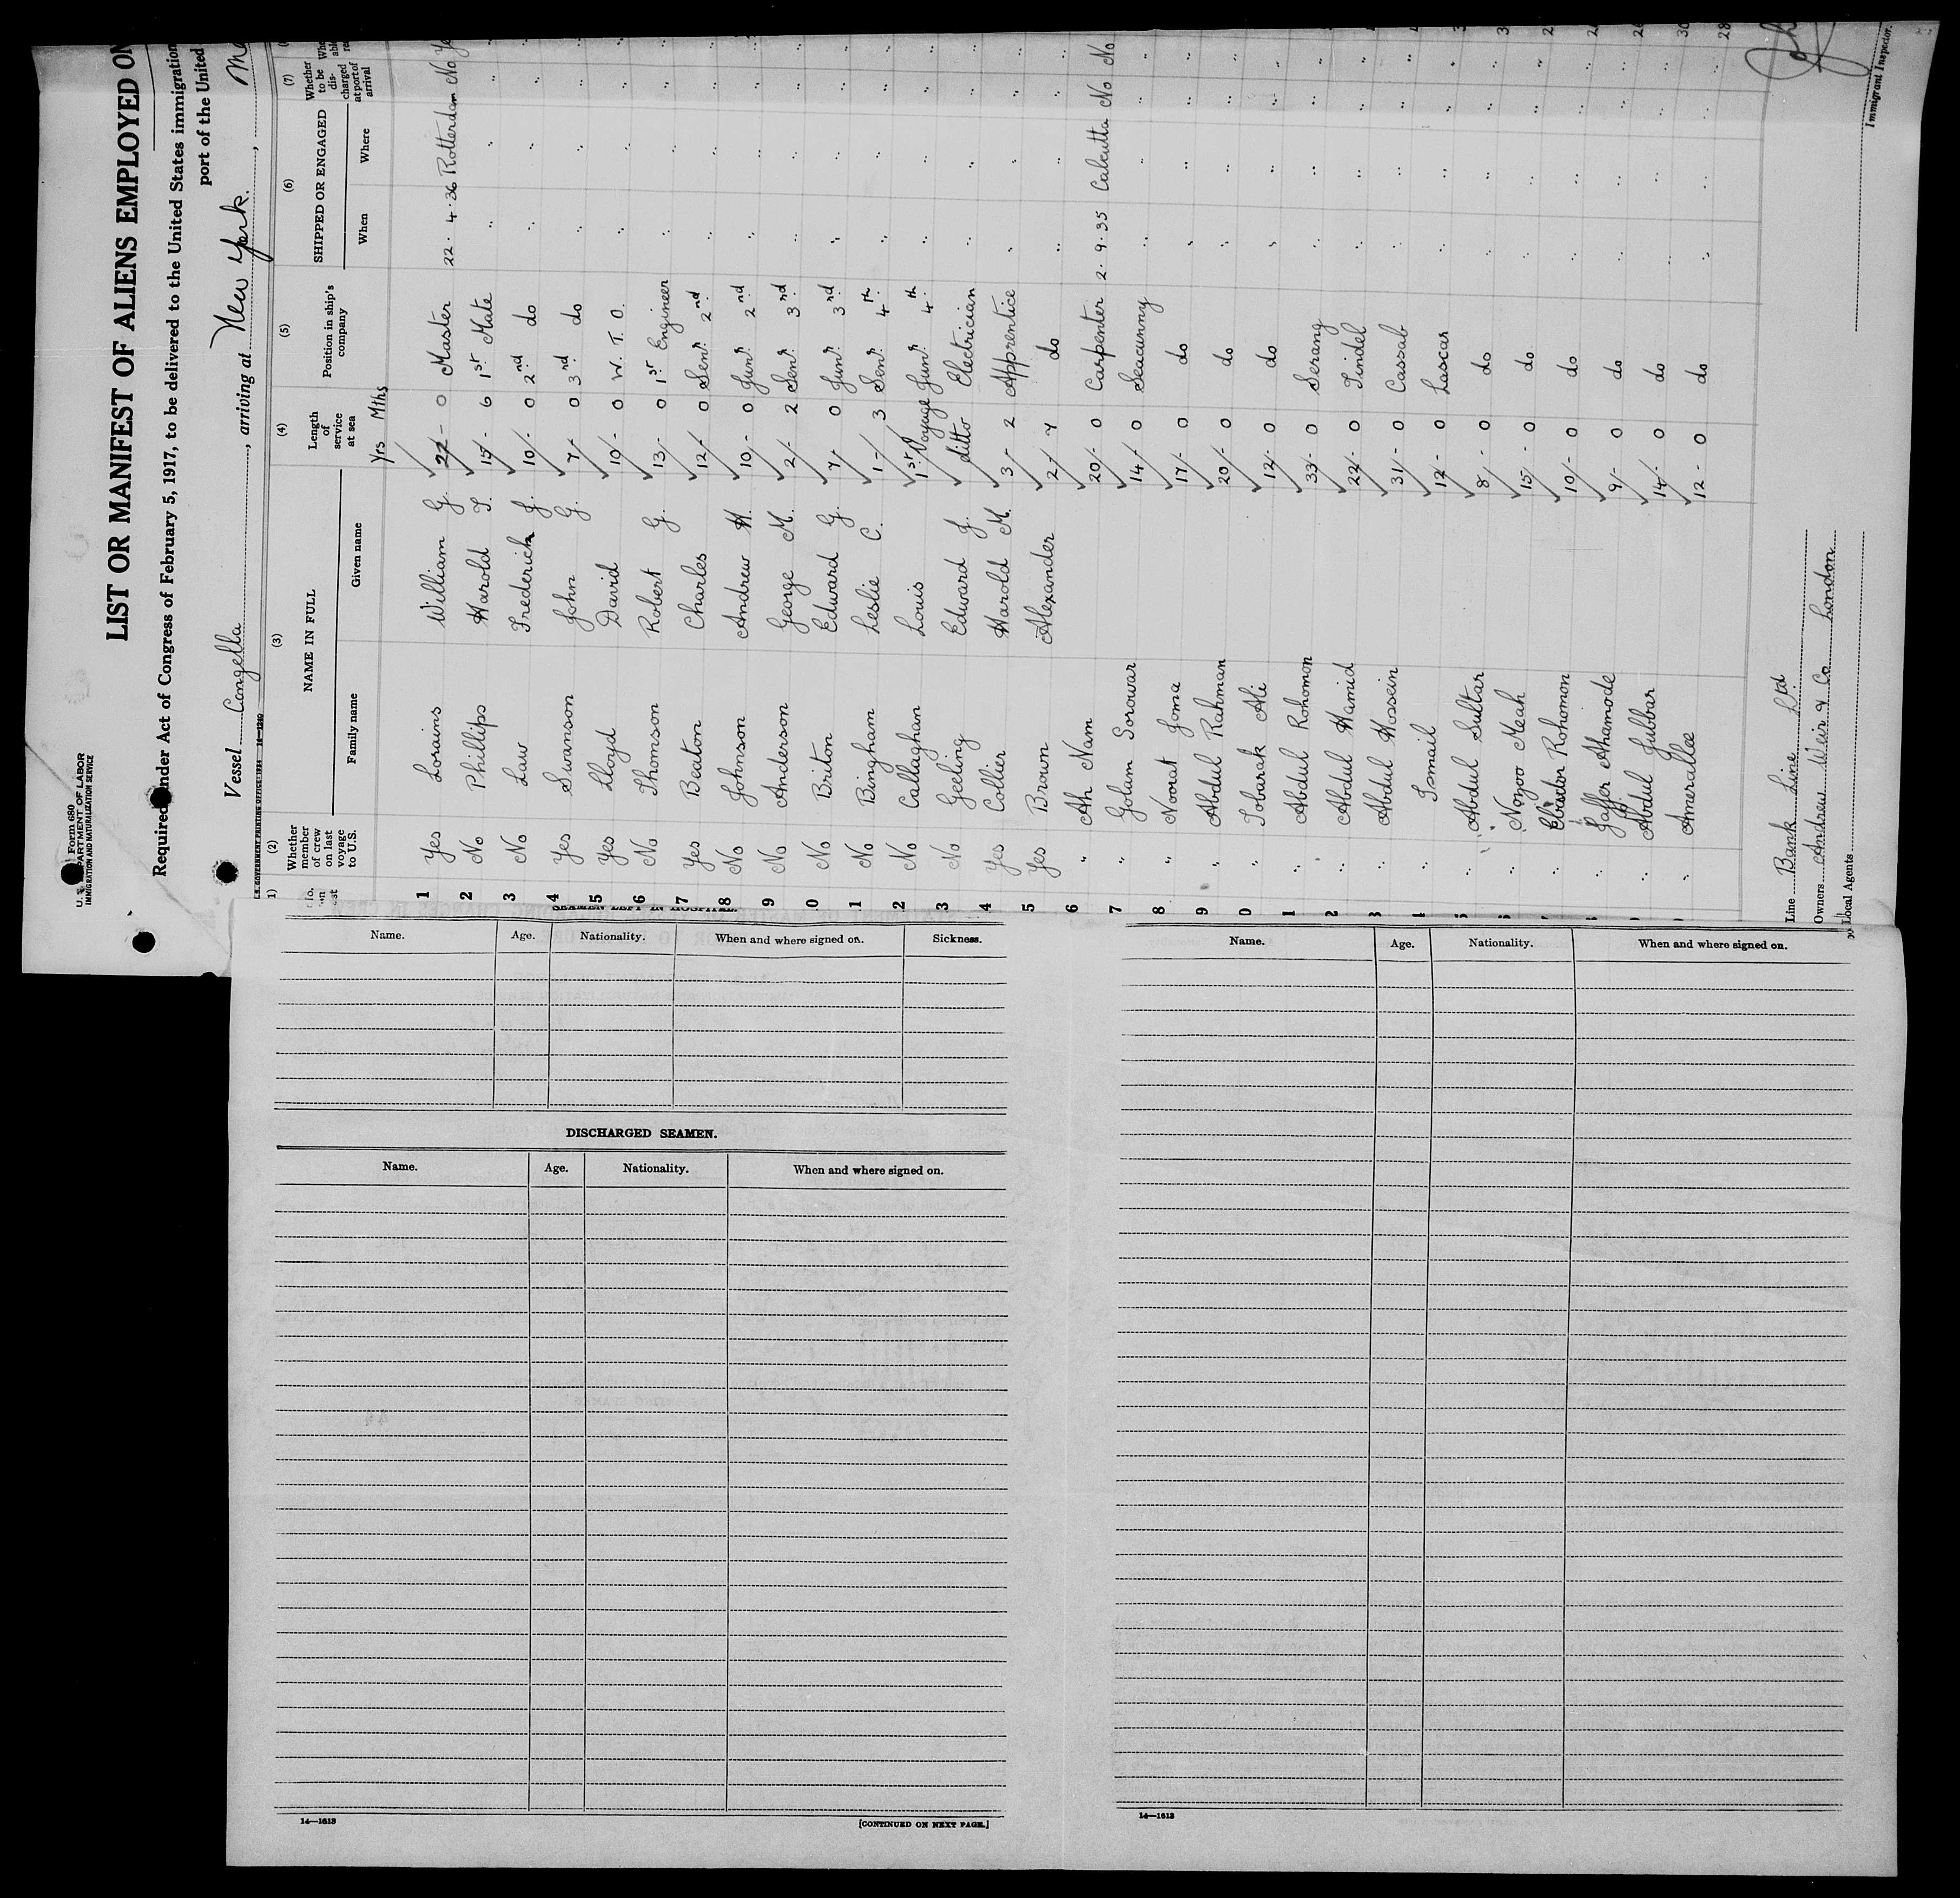 U. S. DEPARTMENT OF LABOR
IMMIGRATION AND NATURALIZATION SERVICE
Form 680
LIST OR MANIFEST OF ALIENS EMPLOYED ON
Required under Act of Congress of February 5, 1917, to be delivered to the United States immigration
port of the United
Vessel Cangella, arriving at New York.,
U.S. GOVERNMENT PRINTING OFFICE
(2) (3) (4) (5) (6) (7)
Whether member of crew on last voyage to U.S. NAME IN FULL Length of service at sea Position in ship's company SHIPPED OR ENGAGED Whether to be discharged at port of arrival
Family name Given name Yrs Mths When Where
1 Yes Lorains William G. 22 - 0 Master 22 . 4 . 36 Rotterdam No Yes
2 No Phillips Harold T. 15 - 6 1st Mate " " "
3 No Law Frederick J. 10 - 0 2nd do " " "
4 Yes Swanson John G. 7 - 0 3rd do " " "
5 Yes Lloyd David 10 - 0 W. T. O. " " "
6 No Thomson Robert G. 13 - 0 1st Engineer " " "
7 Yes Beaton Charles 12 - 0 Senr. 2nd " " "
8 No Johnson Andrew H. 10 - 0 Junr. 2nd " " "
9 No Anderson George M. 2 - 2 Senr. 3rd " " "
0 No Briton Edward G. 7 - 0 Junr. 3rd " " "
1 No Bingham Leslie C. 1 - 3 Senr. 4th " " "
2 No Callaghan Louis 1st Voyage Junr. 4th " " "
3 No Geeling Edward J. ditto Electrician " " "
4 Yes Collier Harold M. 3 - 2 Apprentice " " "
5 Yes Brown Alexander 2 - 7 do " " "
6 " Ah Nam 20 - 0 Carpenter 2 . 9 . 35 Calcutta No No
7 " Golam Sorowar 14 - 0 Seacunny " " " "
8 " Noorat Joma 17 - 0 do " " " "
9 " Abdul Rahman 20 - 0 do " " " "
0 " Tobarak Ali 12 - 0 do " " " "
1 " Abdul Rohomon 33 - 0 Serang " " " "
2 " Abdul Hamid 22 - 0 Tindel " " " "
3 " Abdul Hossein 31 - 0 Cassab " " " "
4 " Ismail 12 - 0 Lascar " " " "
5 " Abdul Sultar 8 - 0 do " " " "
6 " Noyoo Meah 15 - 0 do " " " "
7 " Rohomon 10 - 0 do " " " "
8 " Jaffer Ahamode 9 - 0 do " " " "
9 " Abdul Jubbar 14 - 0 do " " " "
0 " Amerallee 12 - 0 do " " " 28
Line Bank Line Ltd
Owners Andrew Weir & Co London
Local Agents
Immigrant Inspector.
SEAMEN LEFT IN HOSPITAL.
Name. Age. Nationality. When and where signed on. Sickness.
DISCHARGED SEAMEN.
Name. Age. Nationality. When and where signed on.
14—1613
[CONTINUED ON NEXT PAGE.]
Name. Age. Nationality. When and where signed on.
14—1613